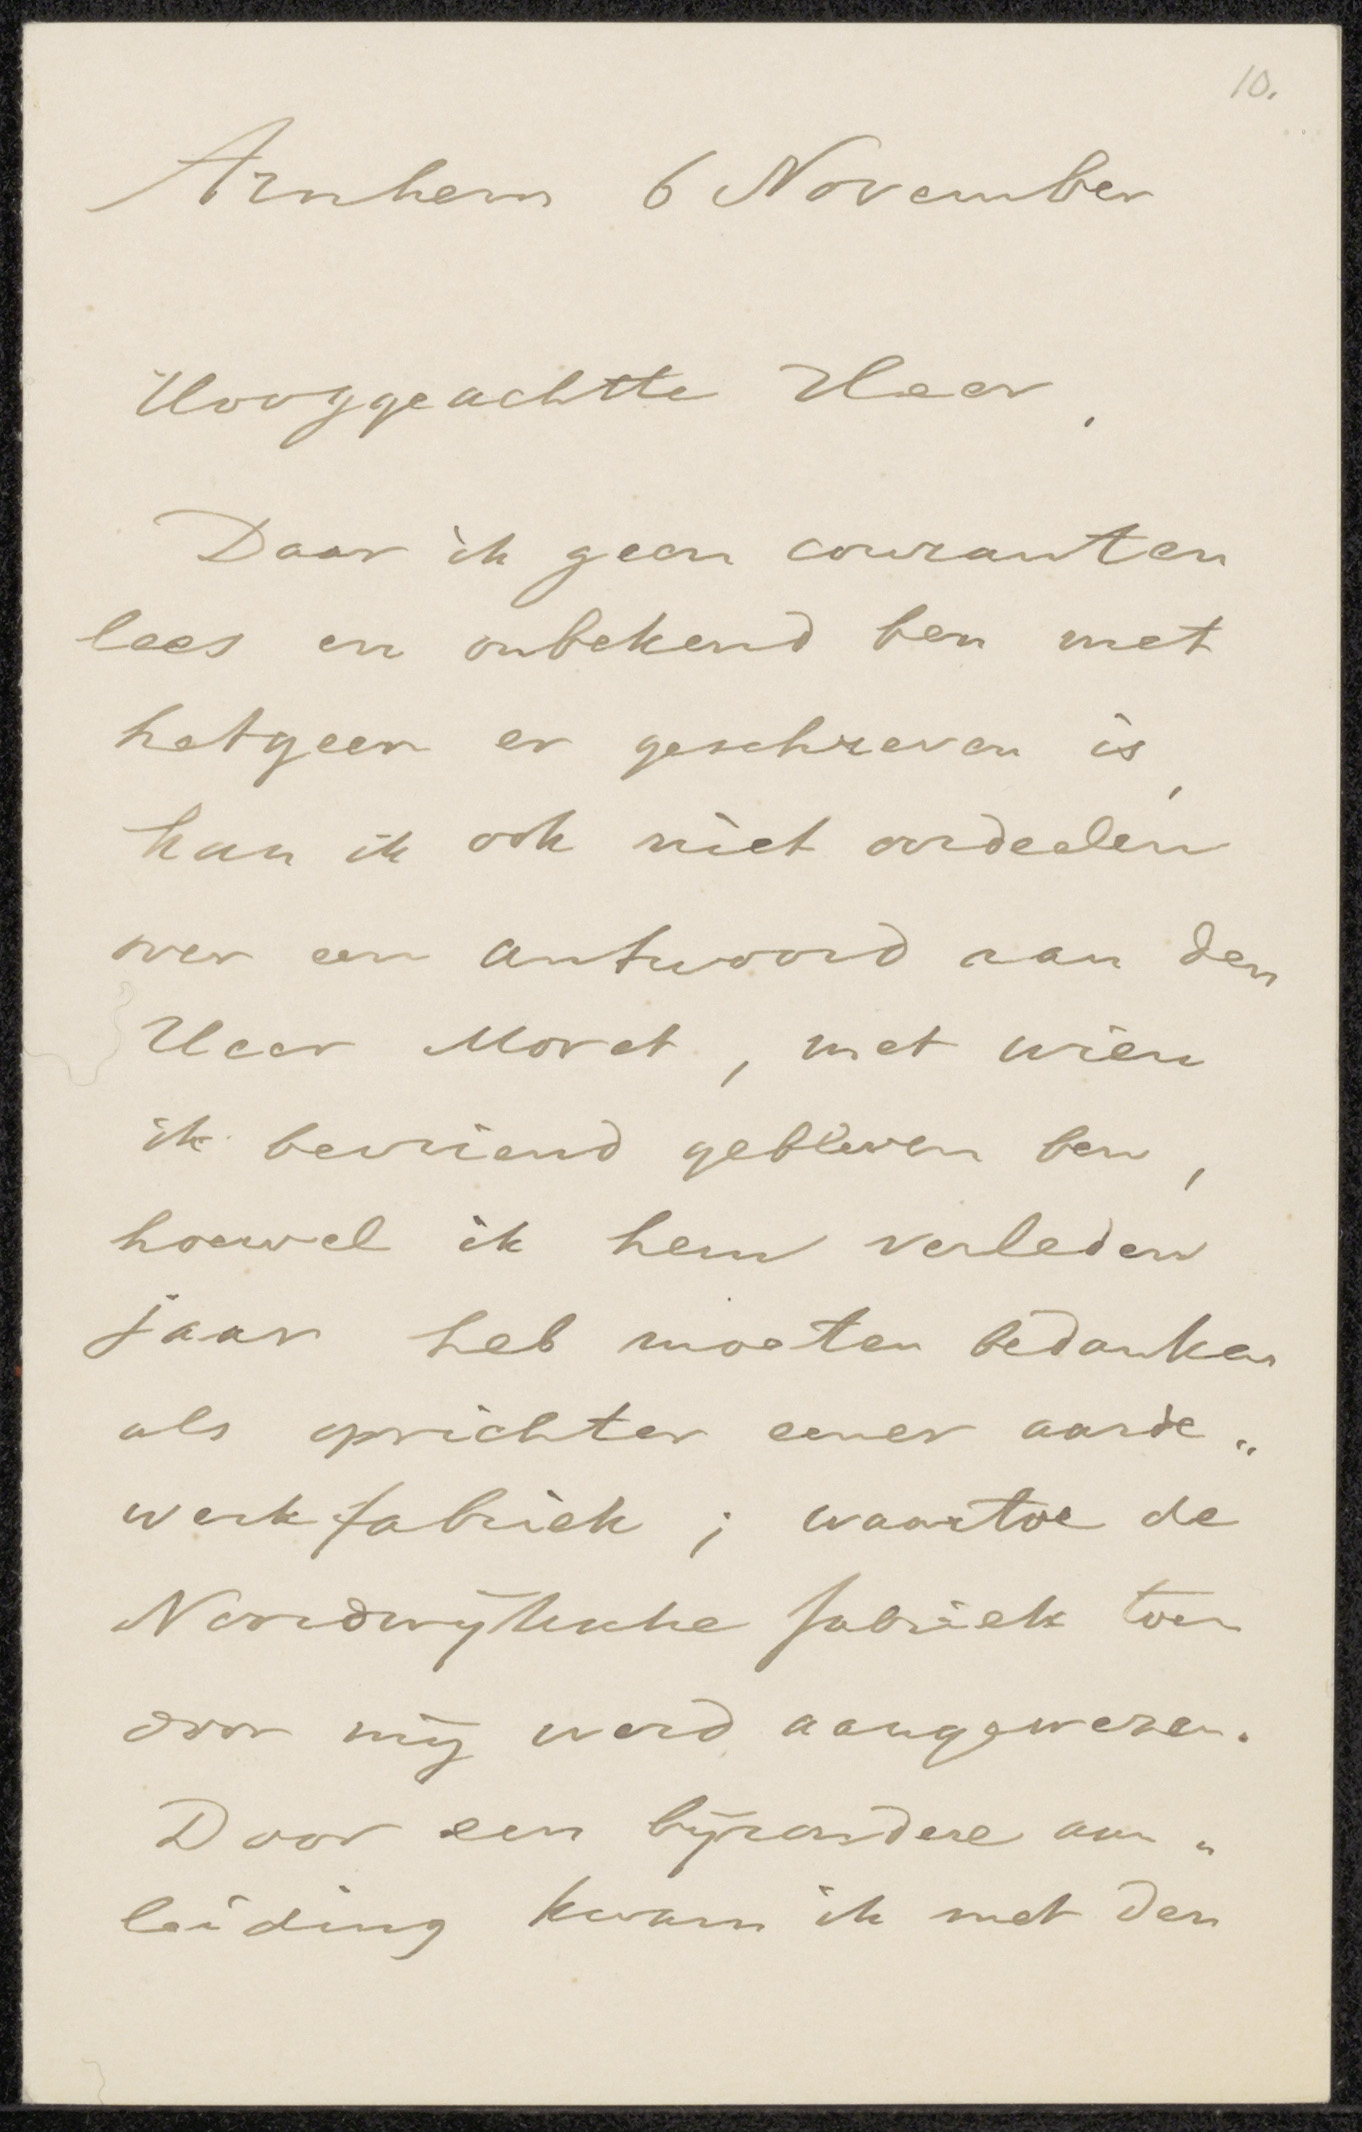 10.
Arnhem 6 November
Hooggeachtte Heer,
Daar ik geen couranten
lees en onbekend ben met
hetgeen er geschreven is,
kan ik ook niet oordeelen
over een antwoord aan den
Heer Moret, met wien
ik bevriend gebleven ben,
hoewel ik hem verleden
jaar heb moeten bedanken
als oprichter eener aarde„
werkfabriek; waartoe de
Noordwijksche fabriek toen
door mij werd aangewezen.
Door een bijzondere aan„
leiding kwam ik met den